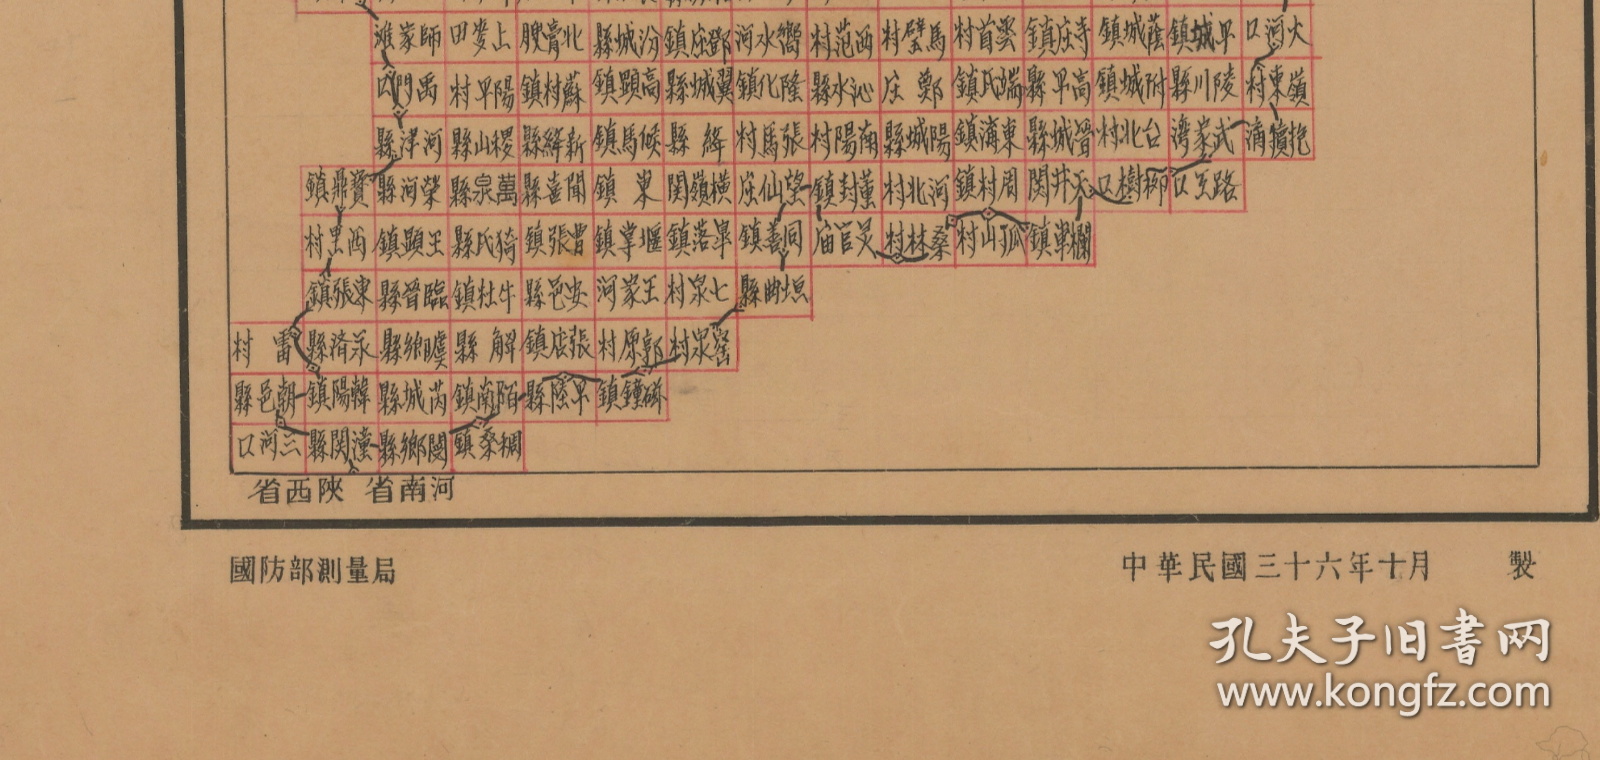 火河口 平城鎮 蔭城鎮 寺庄鎮 雲首村 馬壁村 西范村 嚮水河 鄧庄鎮 汾城縣 北膏腴 上岺田 師家滩
嶺東村 陵川縣 附城鎮 高平縣 端氏鎮 鄭庄 沁水縣 隆化鎮 翼城縣 高顕鎮 蘇村鎮 陽平村 禹門口
武家湾 台北村 晋城縣 東溝鎮 陽城縣 南陽村 張馬村 絳縣 候馬鎮 新絳縣 稷山縣 河津縣
柳樹口 天井関 周村鎮 河北村 董封鎮 望仙庄 横嶺関 東鎮 聞喜縣 萬泉縣 榮河縣 寶鼎鎮
欄車鎮 孤山村 桑林村 灵官庙 同善鎮 皋落鎮 堰掌鎮 曹張鎮 猗氏縣 王顕鎮 西里村
垣曲縣 七泉村 王家河 安邑縣 牛杜鎮 臨晉縣 東張鎮
窑泉村 郭原村 張店鎮 解縣 虞鄉縣 永済縣 雷村
磁鐘鎮 平陸縣 陌南鎮 芮城縣 韓陽鎮 朝邑縣
稠桑鎮 閿鄉縣 潼関縣 三河口
河南省 陝西省
國防部測量局
中華民國三十六年十月 製
孔夫子旧书网
www.kongfz.com